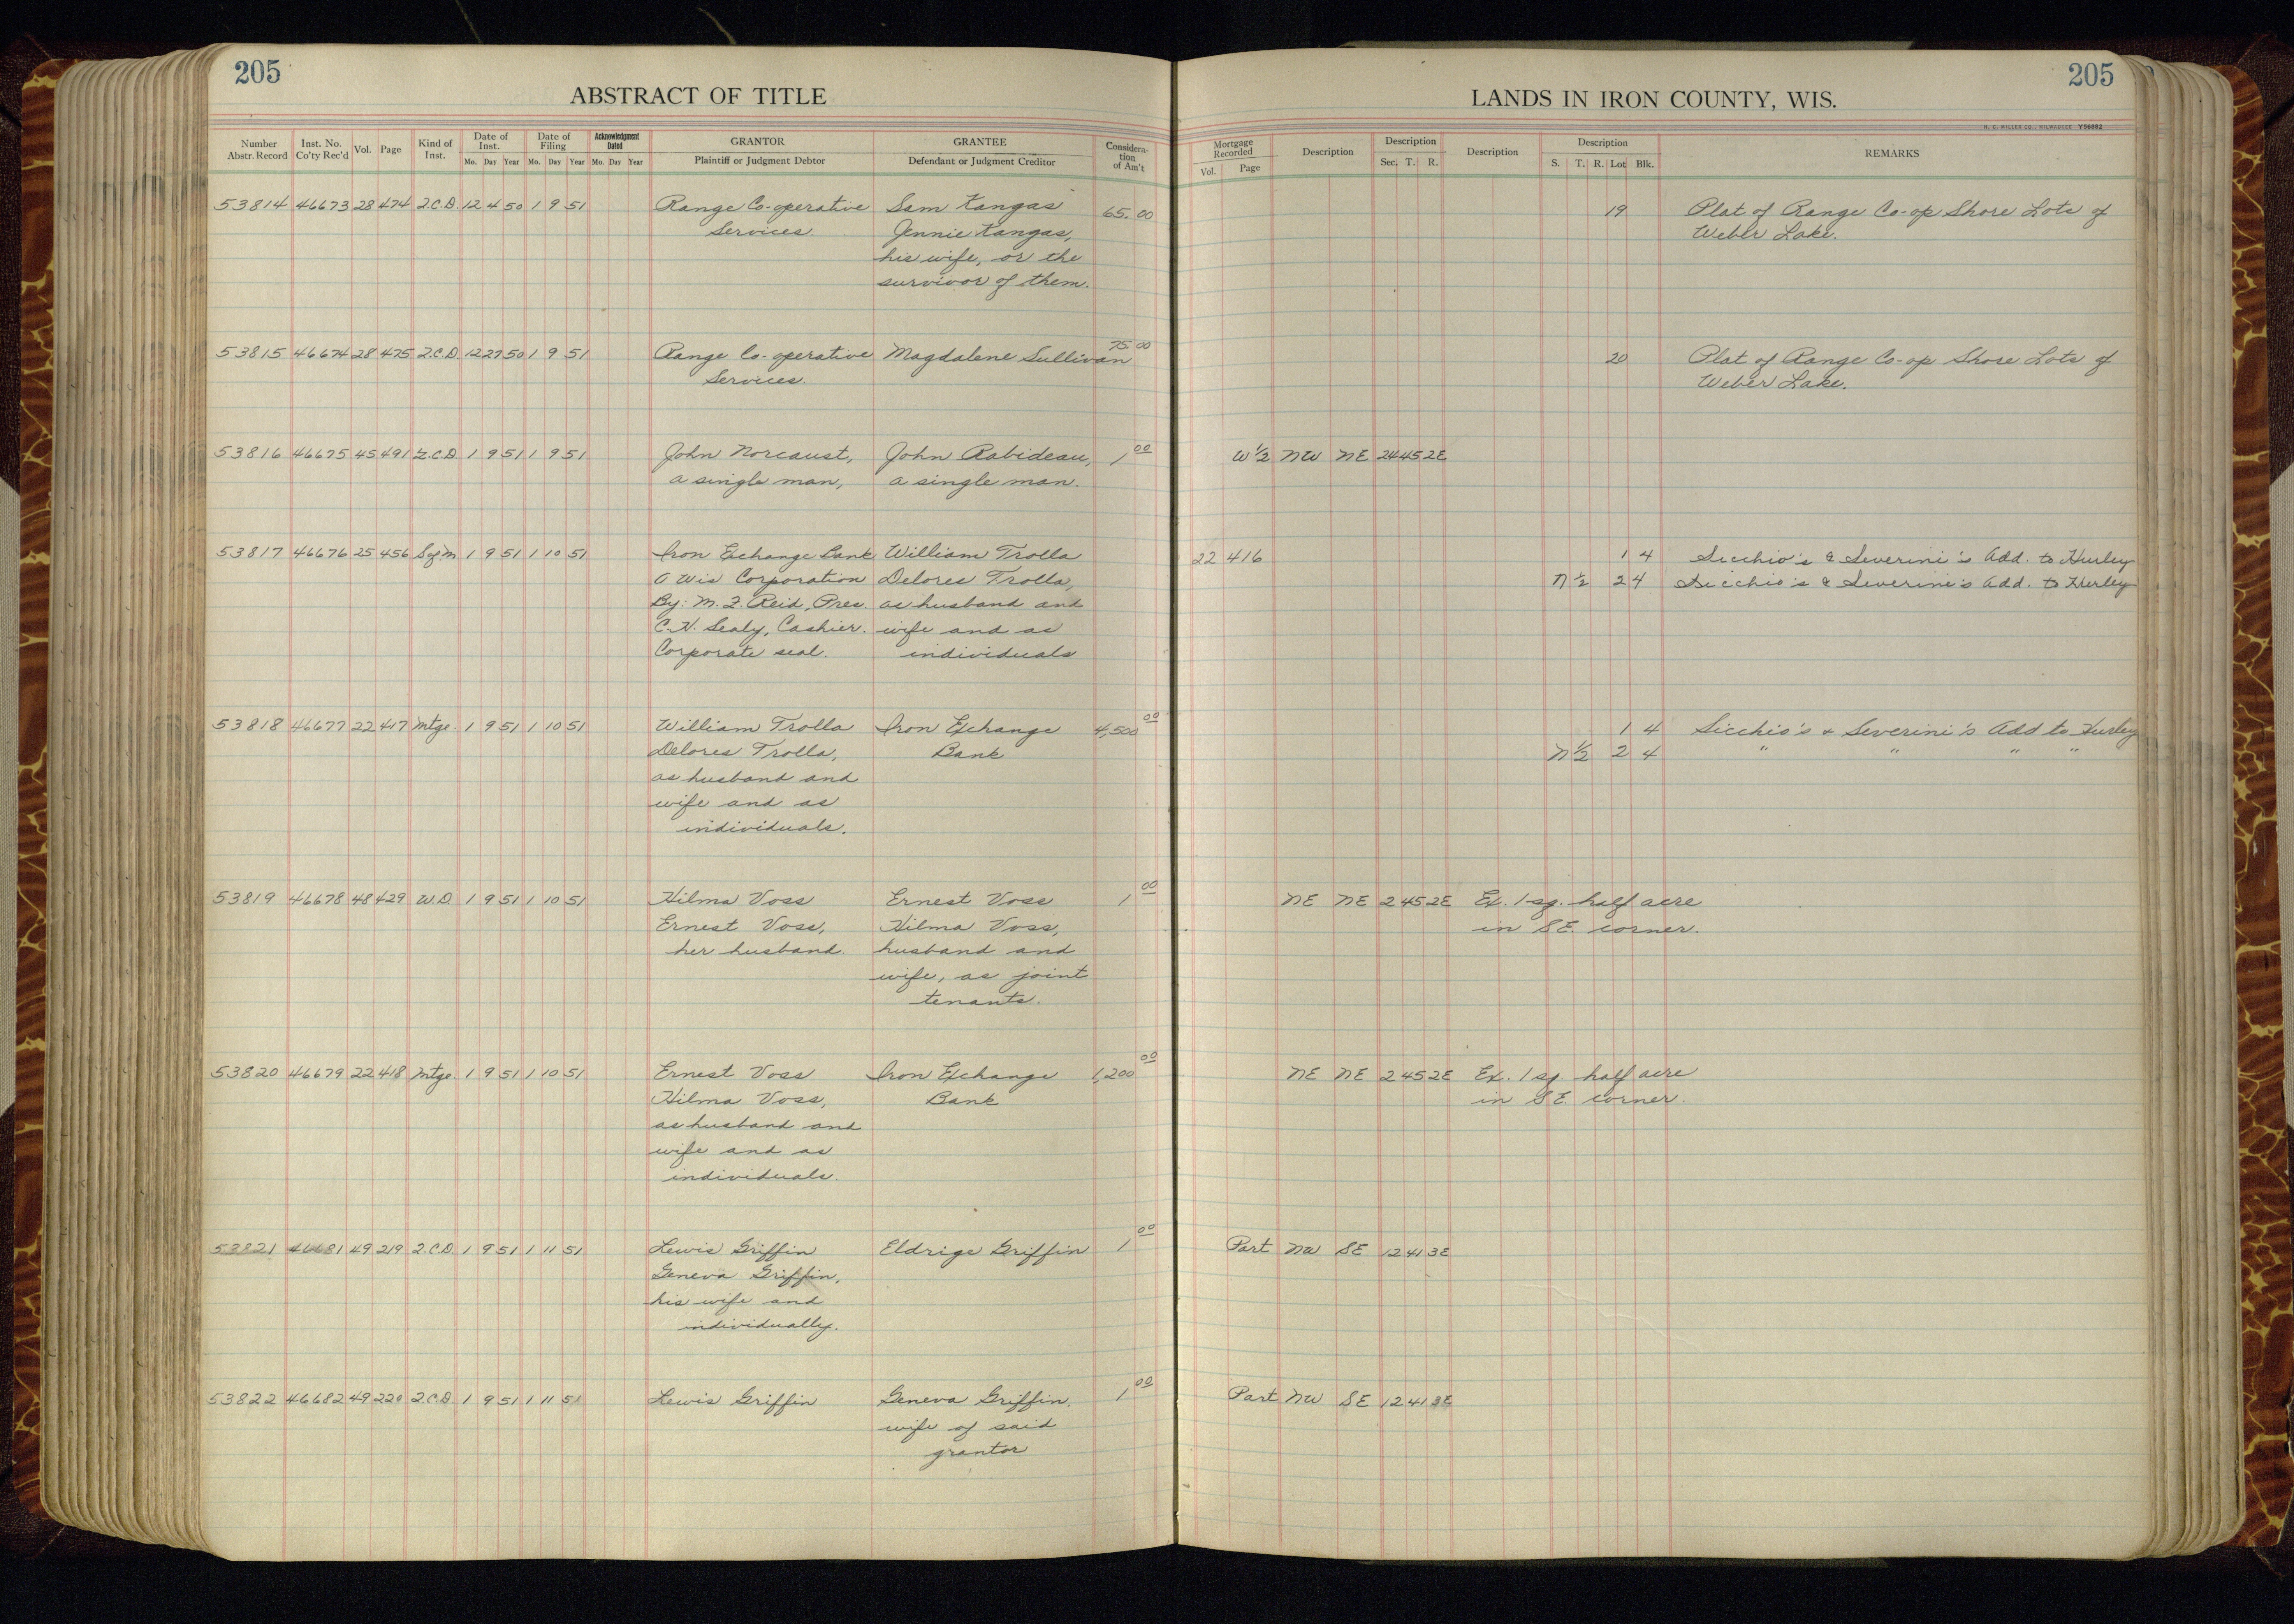 205
ABSTRACT OF TITLE
Number Abstr. Record Inst. No. Co'ty Rec'd Vol. Page Kind of Inst. Date of Inst. Mo. Day Year Date of Filing Mo. Day Year Acknowledgment Dated Mo. Day Year GRANTOR Plaintiff or Judgment Debtor GRANTEE Defendant or Judgment Creditor Consideration of Am't
53814 46673 28 474 2.C.D. 12 4 50 1 9 51 Range Co-operative Sam Kangas 65.00
Services. Jennie Kangas,
his wife, or the
survivor of them.
53815 46674 28 475 2.C.D. 12 27 50 1 9 51 Range Co-operative Magdalene Sullivan 75.00
Services.
53816 46675 45 491 2.C.D. 1 9 51 1 9 51 John Norcaust, John Rabideau, 1 00
a single man, a single man.
53817 46676 25 456 1 9 51 1 10 51 Iron Exchange Bank William Trolla
A Wis Corporation Delores Trolla,
By: M. J. Reid, Pres. as husband and
C. N. Sealy, Cashier. wife and as
Corporate seal. individuals
53818 46677 22 417 Mtge. 1 9 51 1 10 51 William Trolla Iron Exchange 4,500 00
Delores Trolla, Bank
as husband and
wife and as
individuals.
53819 46678 48 429 W.D. 1 9 51 1 10 51 Hilma Voss Ernest Voss 1 00
Ernest Voss, Hilma Voss,
her husband. husband and
wife, as joint
tenants.
53820 46679 22 418 Mtge 1 9 51 1 10 51 Ernest Voss Iron Exchange 1,200 00
Hilma Voss, Bank
as husband and
wife and as
individuals.
53821 46681 49 219 2.C.D. 1 9 51 1 11 51 Lewis Griffin Eldrige Griffin 1 00
Geneva Griffin,
his wife and
individually.
53822 46682 49 220 2.C.D. 1 9 51 1 11 51 Lewis Griffin Geneva Griffin, 1 00
wife of said
grantor
205
LANDS IN IRON COUNTY, WIS.
H. C. MILLER CO., MILWAUKEE Y56662
Mortgage Recorded Vol. Page Description Description Sec. T. R. Description Description S. T. R. Lot Blk. REMARKS
19 Plat of Range Co-op Shore Lots of
Weber Lake.
20 Plat of Range Co-op Shore Lots of
Weber Lake.
W ½ NW NE 24 45 2E
22 416 1 4 Sicchio's & Severini's Add. to Hurley
N ½ 2 4 Sicchio's & Severini's Add. to Hurley
1 4 Sicchio's & Severini's Add to Hurley
N ½ 2 4 " " " "
NE NE 2 45 2E Ex. 1 sq. half acre
in SE. corner.
NE NE 2 45 2E Ex. 1 sq. half acre
in SE. corner.
Part NW SE 12 41 3E
Part NW SE 12 41 3E